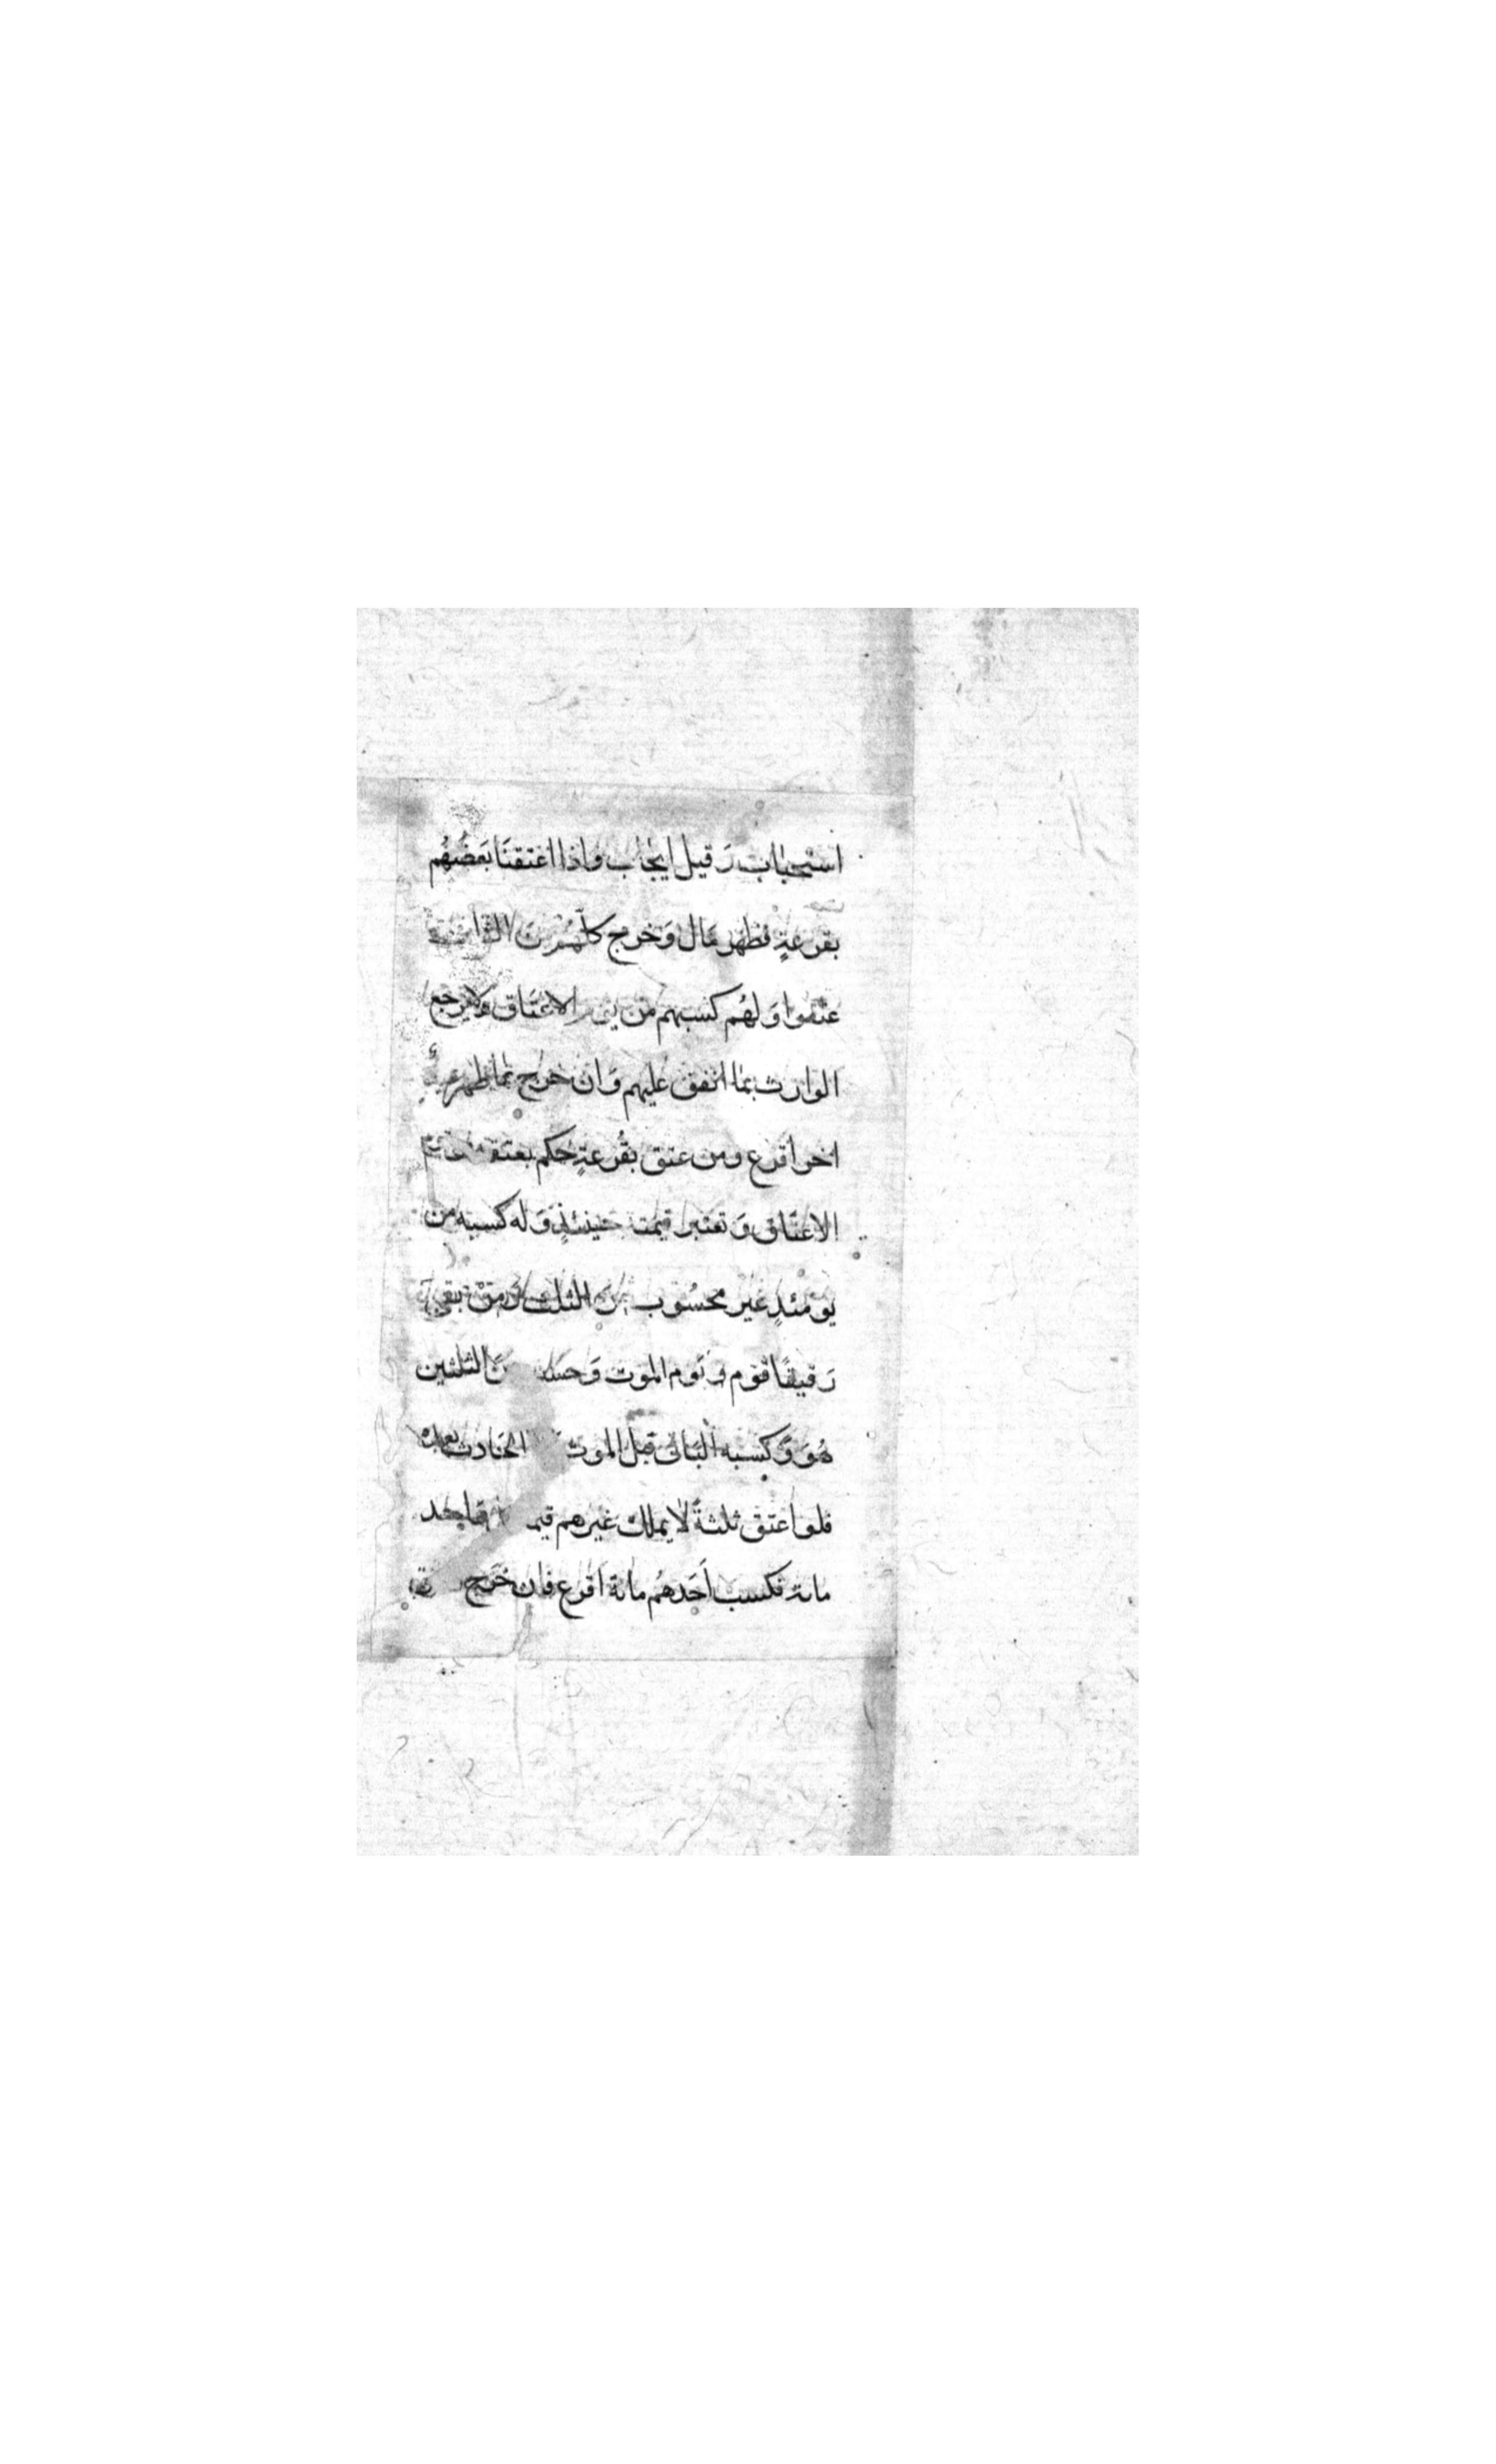 استحباب وقيل ايجاب واذا اعتقنا بعضهم
بقرعةٍ فظهر مال وخرج كلهم من الثلث
عتقوا ولهم كسبهم من يوم الاعتاق ولا يرجع
الوارث بما انفق عليهم وان خرج بما ظهر
اخر اقرع ومن عتق بقرعةٍ حكم بعتقه
الاعتاق وتعتبر قيمته حينئذٍ وله كسبه من
يومئذٍ غير محسوب من الثلث ومن بقي
رقيقًا قوم يوم الموت وحسب من الثلثين
هو وكسبه الباقى قبل الموت الحادث بعده
فلو اعتق ثلثةً لا يملك غيرهم
مائة فكسب احدهم مائة اقرع فان خرج